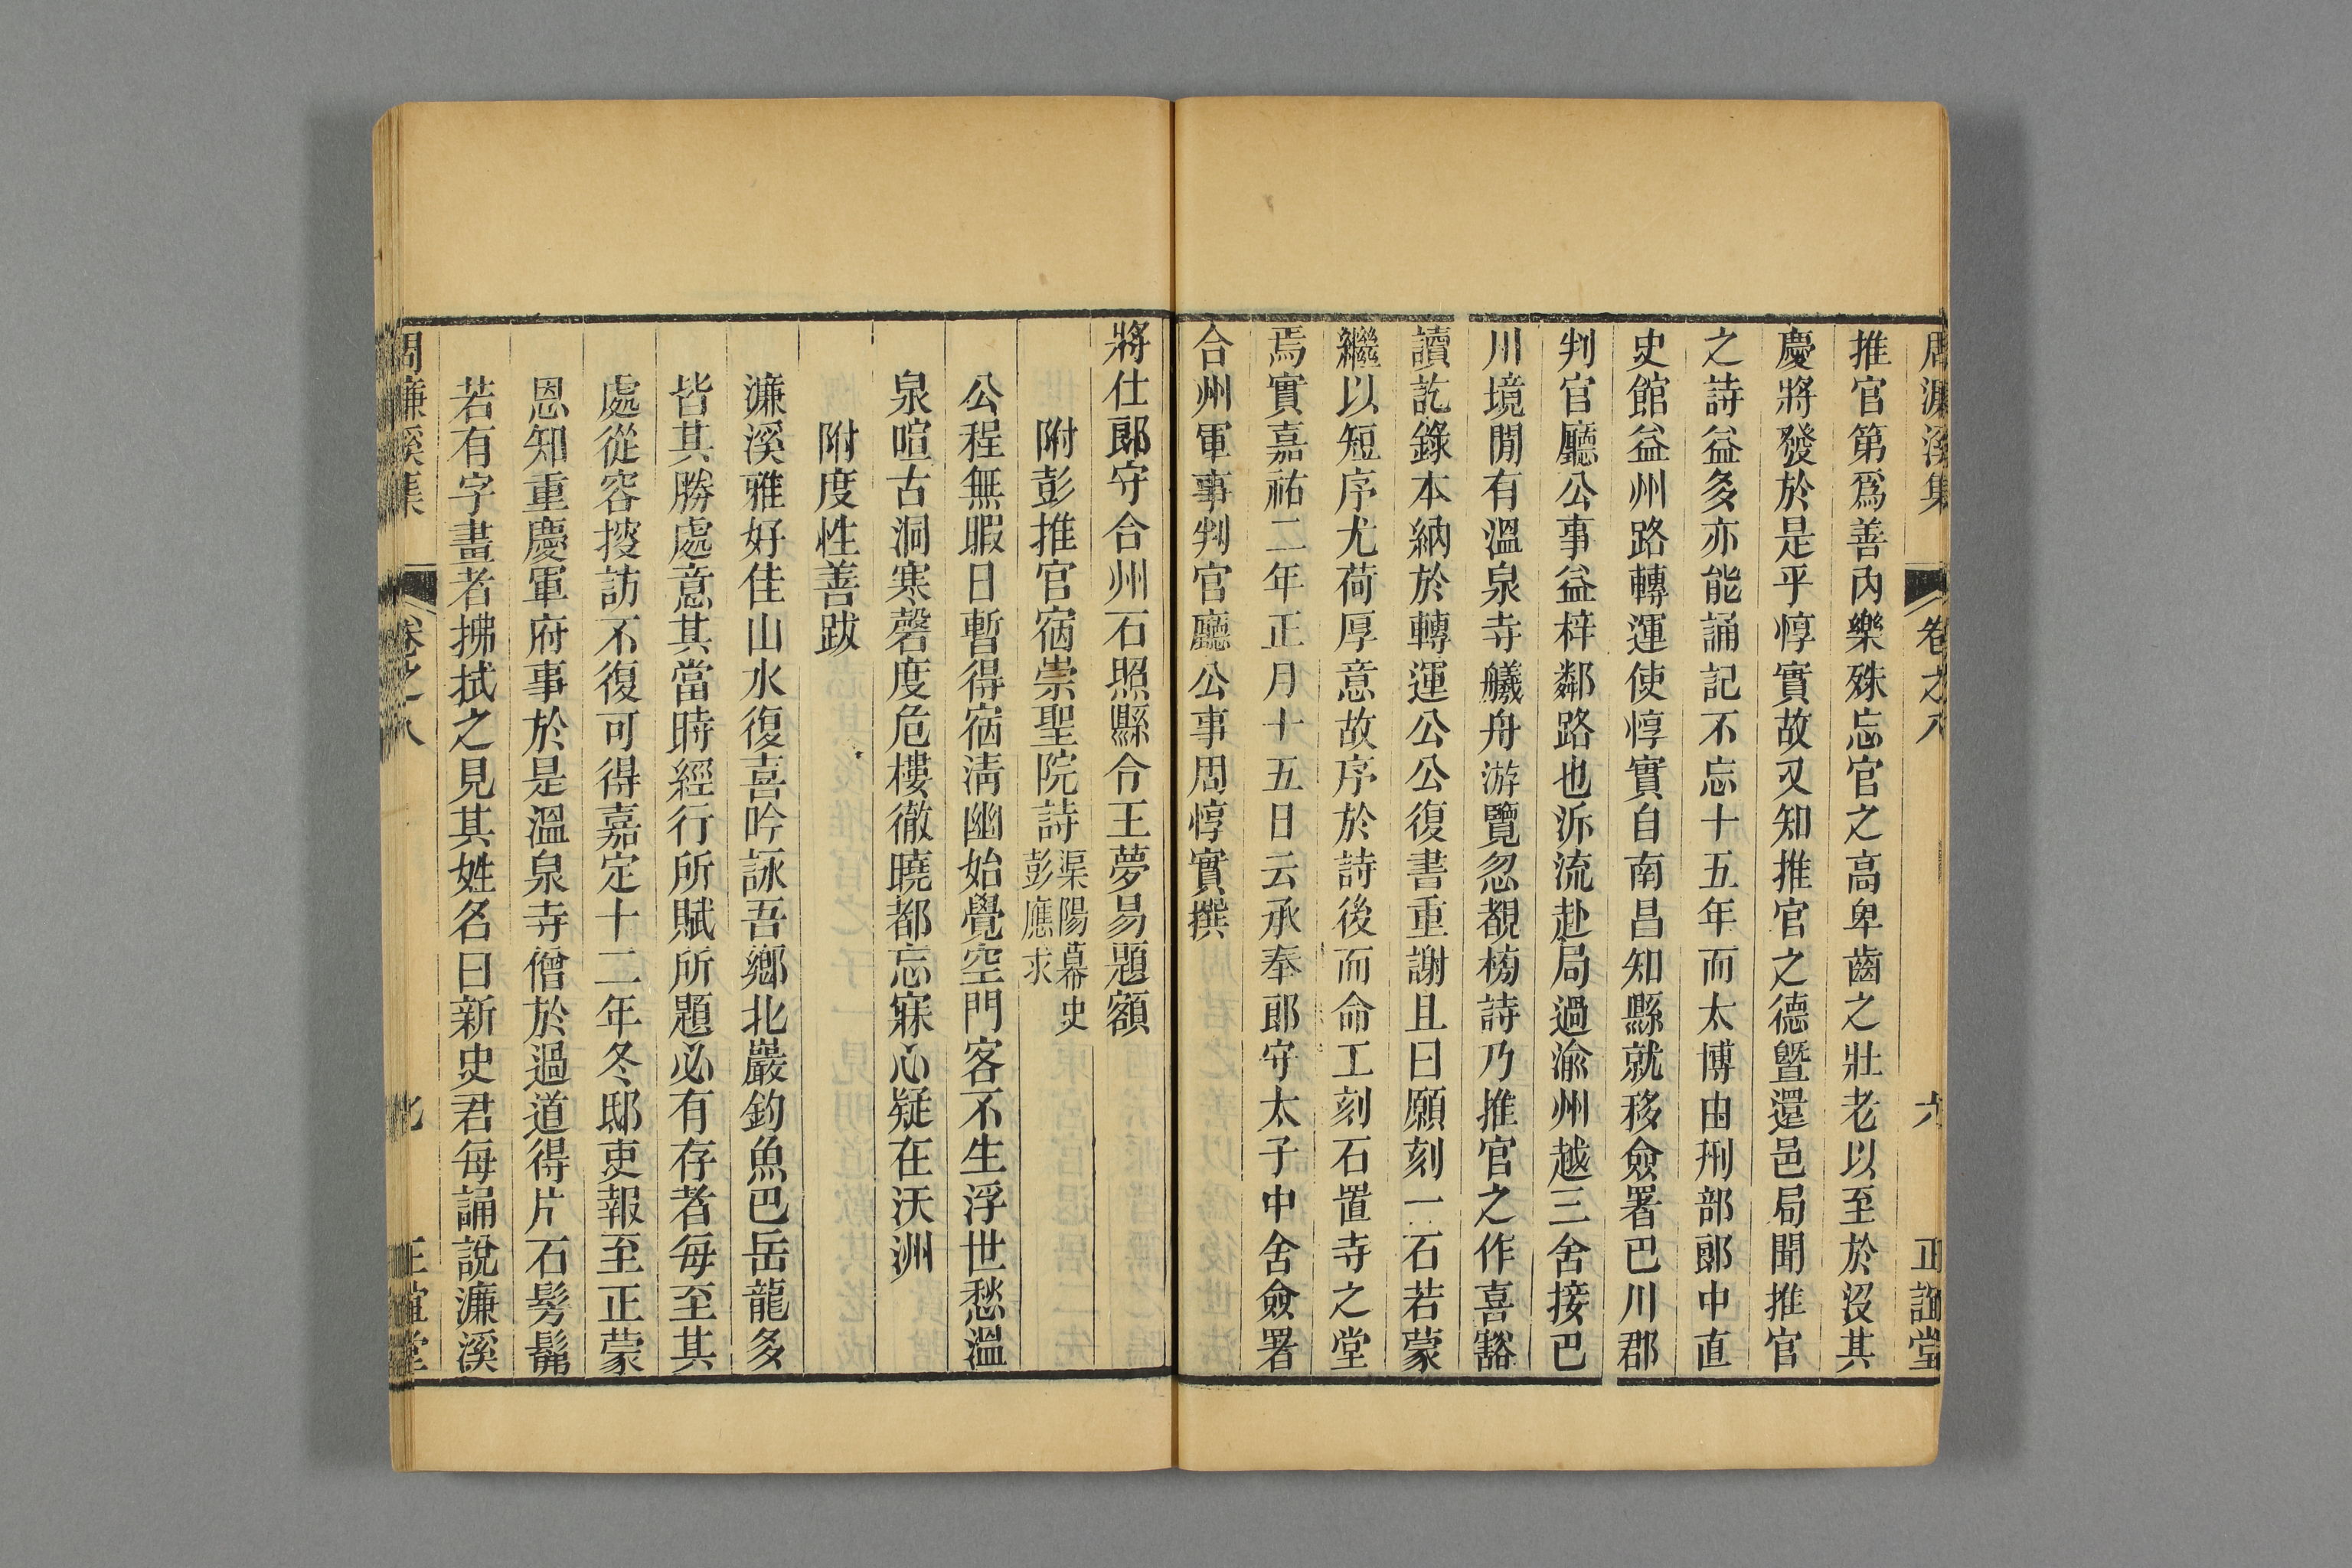 周濂溪集 卷之八 六 正誼堂
推官第爲善內樂殊忘官之高卑齒之壯老以至於沒其
慶將發於是乎惇實故又知推官之德曁還邑局聞推官
之詩益多亦能誦記不忘十五年而太博由刑部郎中直
史館益州路轉運使惇實自南昌知縣就移僉署巴川郡
判官廳公事益梓鄰路也泝流赴局過渝州越三舍接巴
川境閒有溫泉寺艤舟游覽忽覩榜詩乃推官之作喜豁
讀訖錄本納於轉運公公復書重謝且曰願刻一石若蒙
繼以短序尤荷厚意故序於詩後而命工刻石置寺之堂
焉實嘉祐二年正月十五日云承奉郎守太子中舍僉署
合州軍事判官廳公事周惇實撰
將仕郎守合州石照縣令王夢易題額
附彭推官宿崇聖院詩 渠陽幕史彭應求
公程無暇日暫得宿清幽始覺空門客不生浮世愁溫
泉喧古洞寒磬度危樓徹曉都忘寐心疑在沃洲
附度性善跋
濂溪雅好佳山水復喜吟詠吾鄉北巖釣魚巴岳龍多
皆其勝處意其當時經行所賦所題必有存者每至其
處從容搜訪不復可得嘉定十二年冬邸吏報至正蒙
恩知重慶軍府事於是溫泉寺僧於過道得片石髣髴
若有字畫者拂拭之見其姓名曰新史君每誦說濂溪
周濂溪集 卷之八 七 正誼堂